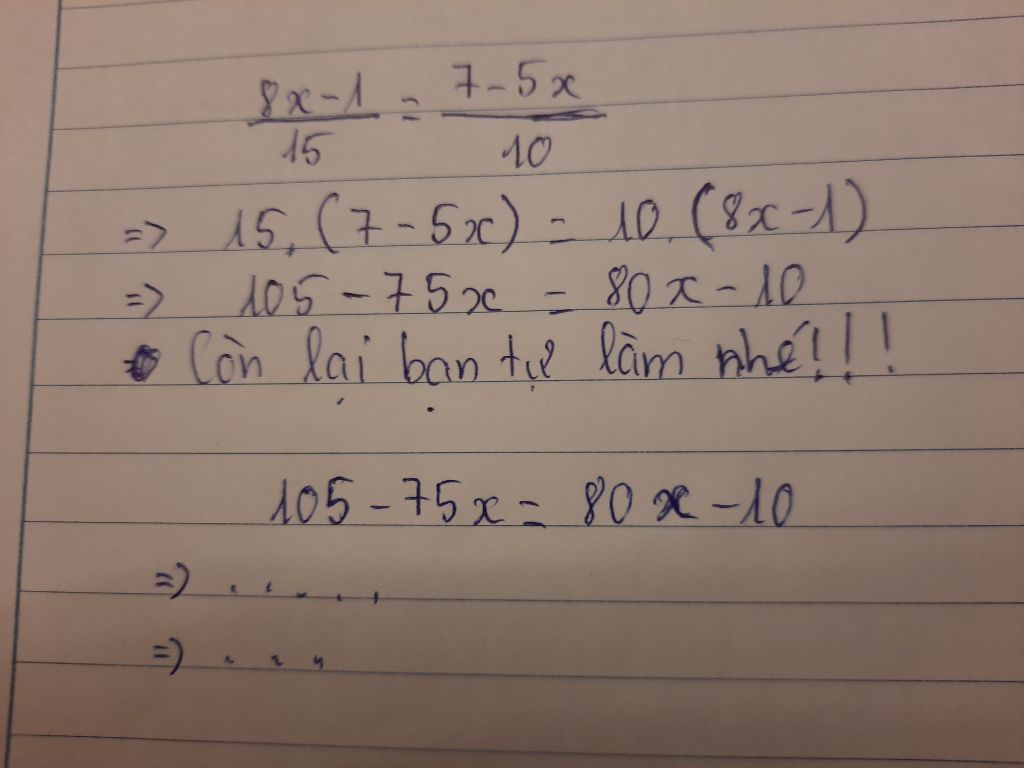 8x-1 / 15 = 7-5x / 10
=> 15.(7-5x) = 10.(8x-1)
=> 105-75x = 80x-10
Còn lại bạn tự làm nhé!!!
105-75x = 80x-10
=> .....
=> ...